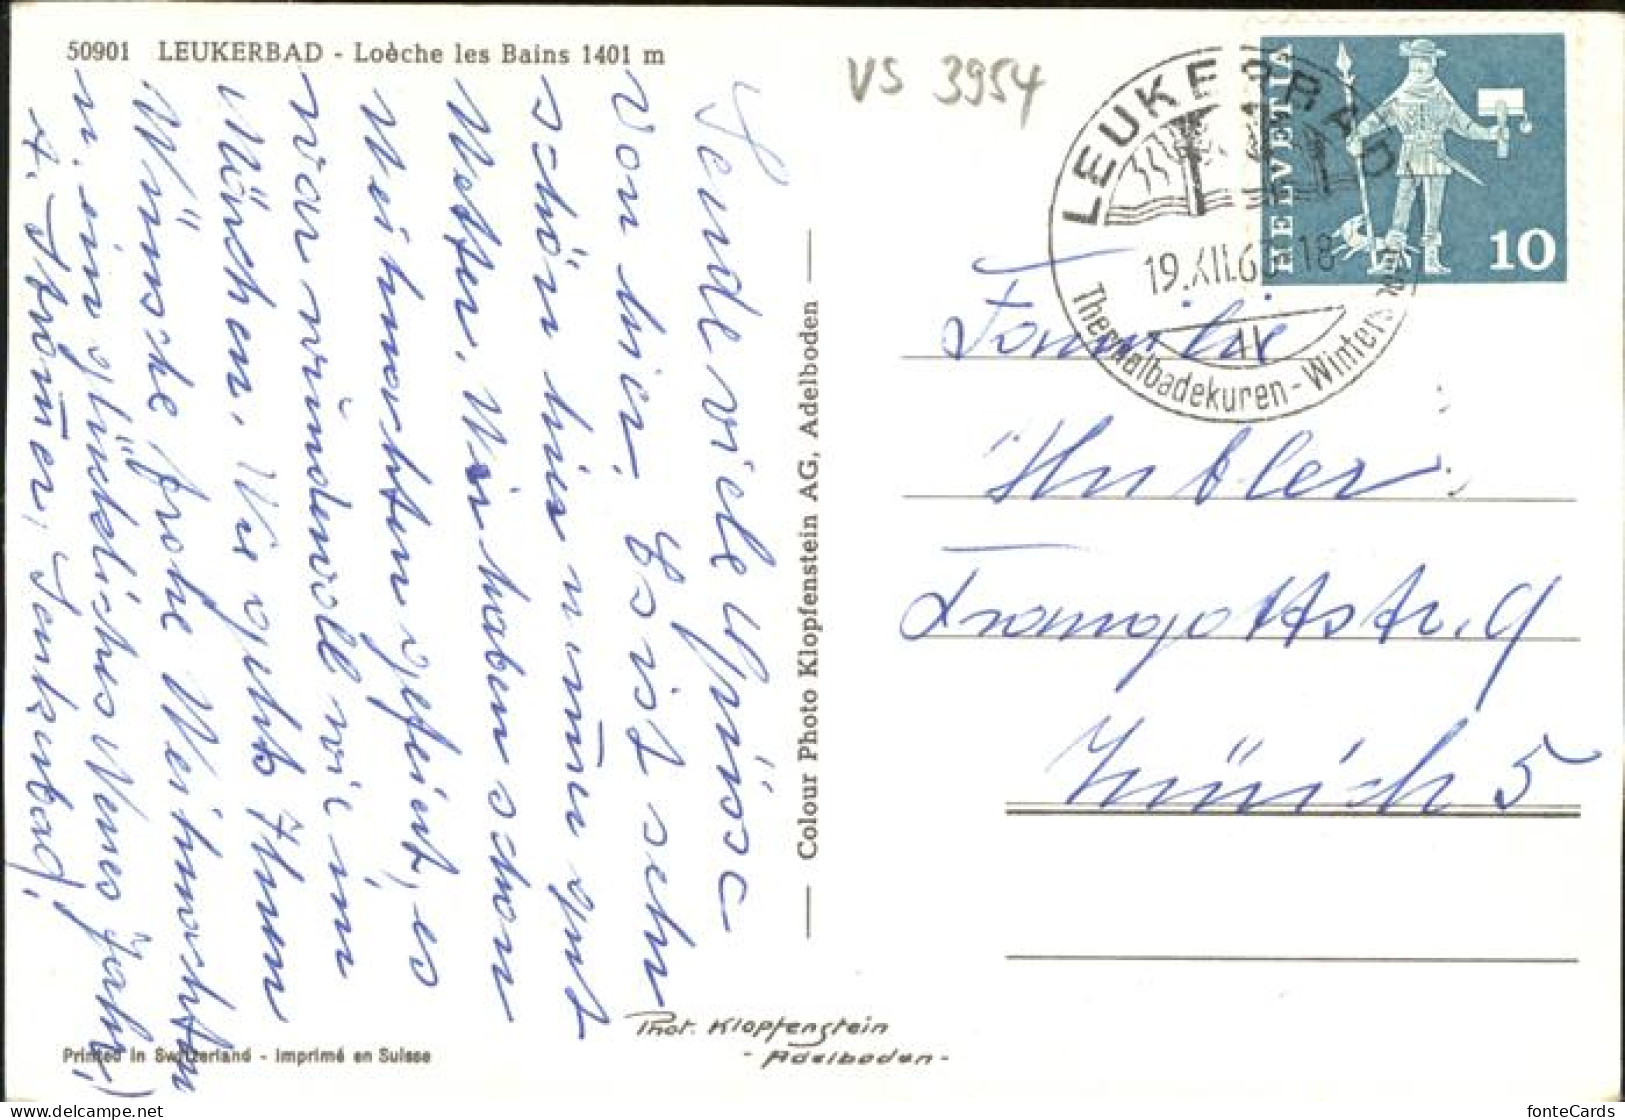 50901 LEUKERBAD - Loèche les Bains 1401 m
VS 3954
HELVETIA
10
LEUKERBAD
19.XII.6 18
Thermalbadekuren - Winters
Sende viele Grüsse
von hier. Es ist sehr
schön hier u. immer gut
Wetter. Wir haben schon
Weihnachten gefeiert, es
war wundervoll wie im
Märchen. Wie gehts Ihnen
Wünsche frohe Weihnachten
u. ein glückliches Neues Jahr!
Leukerbad.
Colour Photo Klopfenstein AG, Adelboden
Familie
Hubler
Trangottstr. 9
Zürich 5
Phot. Klopfenstein
- Adelboden -
Printed in Switzerland - Imprimé en Suisse
fonteCards